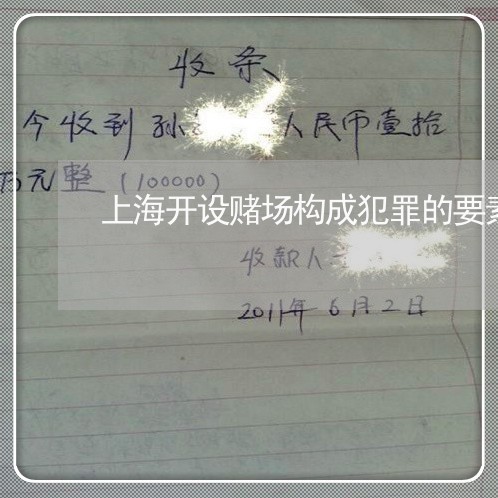 收条
今收到孙 人民币壹拾
万元整（100000）
上海开设赌场构成犯罪的要素
收款人
2011年6月2日